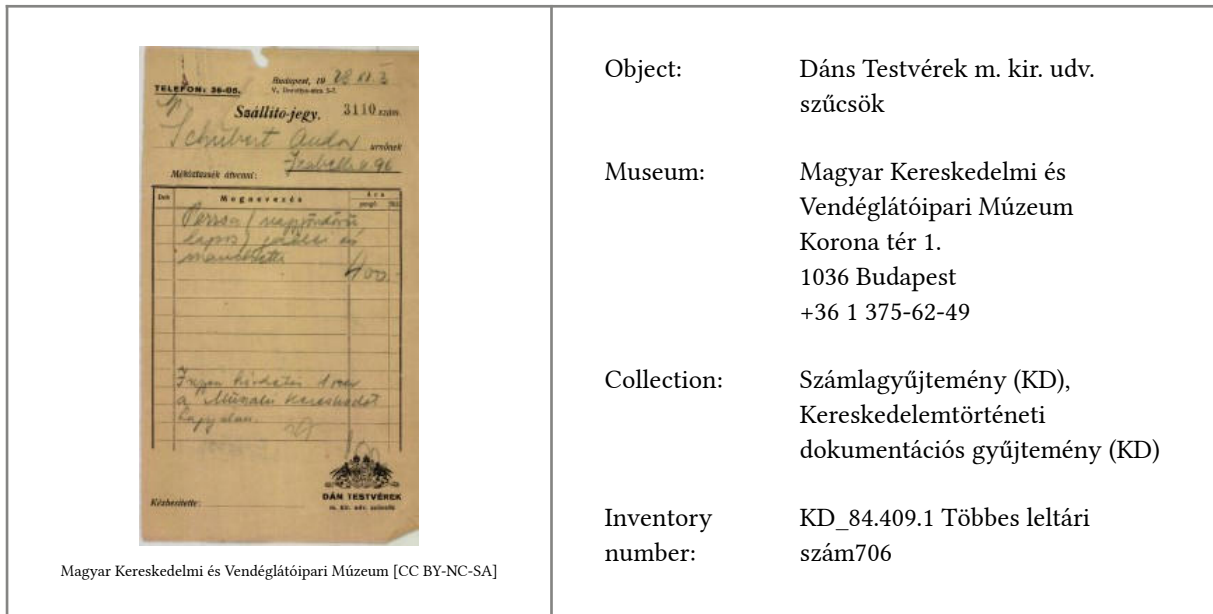 TELEFON: 36-05.
Budapest, 19 28 XI. 3
V., Dorottya-utca 5-7.
Szállító-jegy. 3110 szám.
Schubert Andor urnőnek
Izabella u 96
Méltóztassék átvenni:
Drb Megnevezés Ára
pengő fill.
Persa (
lapos) és
400.-
a
DÁN TESTVÉREK
m. kir. udv. szűcsök
Kézbesítette:
Magyar Kereskedelmi és Vendéglátóipari Múzeum [CC BY-NC-SA]
Object: Dáns Testvérek m. kir. udv.
szűcsök
Museum: Magyar Kereskedelmi és
Vendéglátóipari Múzeum
Korona tér 1.
1036 Budapest
+36 1 375-62-49
Collection: Számlagyűjtemény (KD),
Kereskedelemtörténeti
dokumentációs gyűjtemény (KD)
Inventory KD_84.409.1 Többes leltári
number: szám706